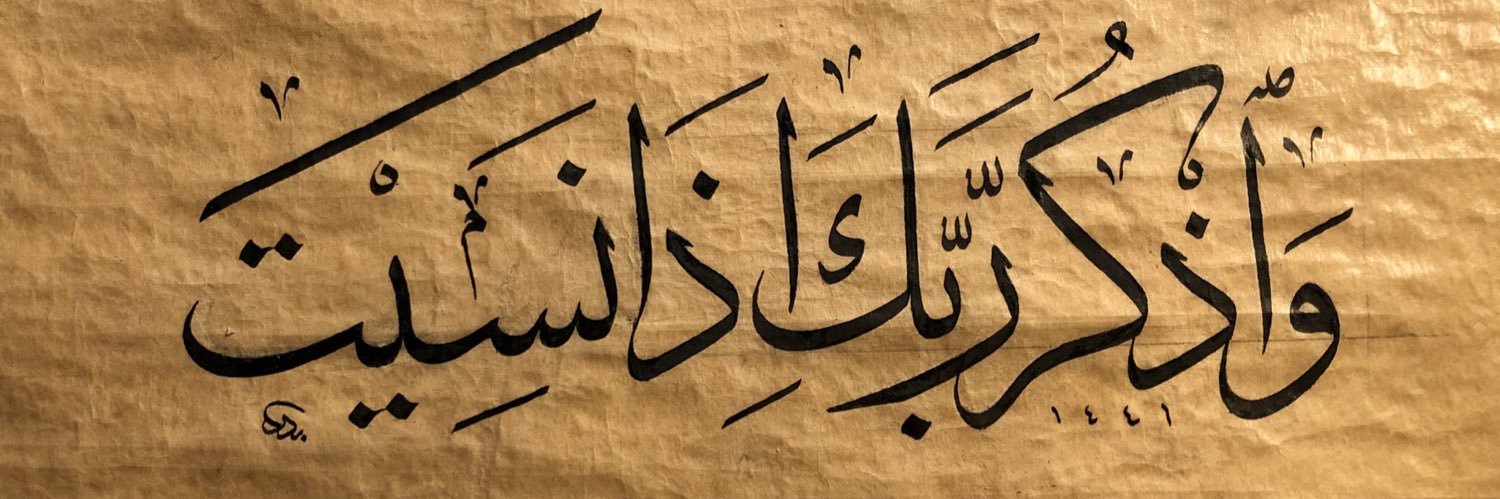 وَٱذْكُر رَّبَّكَ إِذَا نَسِيتَ
١٤٤١